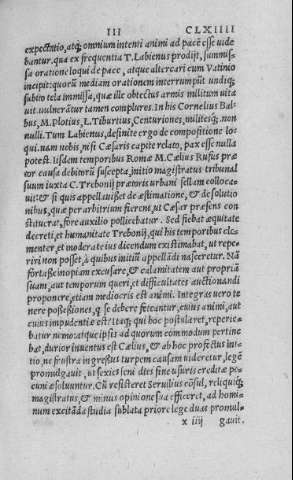 III CLXIIII
expectatio, atq; omnium intenti animi ad pacē esse uide
bantur. qua ex frequentia T. Labienus prodijt, summis-
sa oratione loqui de pace, atque altercari cum Vatinio
incipit: quorū mediam orationem interrumpūt undiq;
subito tela immissa, quæ ille obtectus armis militum uita
uit. uulnerātur tamen complures. In his Cornelius Bal-
bus, M. Plotius, L. Tiburtius, Centuriones, militesq; non
nulli. Tum Labienus, desinite ergo de compositione lo
qui. nam nobis, nisi Cæsaris capite relato, pax esse nulla
potest. Iisdem temporibus Romæ M. Cælius Rufus præ
tor causa debitorū suscepta, initio magistratus tribunal
suum iuxta C. Trebonij prætoris urbani sellam colloca-
uit: & si quis appellauisset de æstimatione, & de solutio
nibus, quæ per arbitrium fierent, ut Cæsar præsens con
stituerat, fore auxilio pollicebatur. Sed fiebat æquitate
decreti, et humanitate Trebonij, qui his temporibus cle
menter, et moderate ius dicendum existimabat, ut repe-
riri non posset, à quibus initiū appellādi nasceretur. Nā
fortasse inopiam excusare, & calamitatem aut propriā
suam, aut temporum queri, et difficultates auctionandi
proponere, etiam mediocris est animi. Integras uero te
nere possessiones, q̄ se debere fateantur, cuius animi, aut
cuius impudentiæ est? Itaq; qui hoc postularet, reperie-
batur nemo: atque ipsis ad quorum commodum pertine
bat, durior inuentus est Cælius, & ab hoc profectus ini-
tio, ne frustra ingressus turpem causam uideretur, legē
promulgauit, ut sexies seni dies sine usuris creditæ pe-
cuniæ soluantur. Cū resisteret Seruilius cōsul, reliquiq;
magistratus, & minus opinione sua efficeret, ad homi-
num excitāda studia sublata priore lege duas promul-
x iiij gauit.